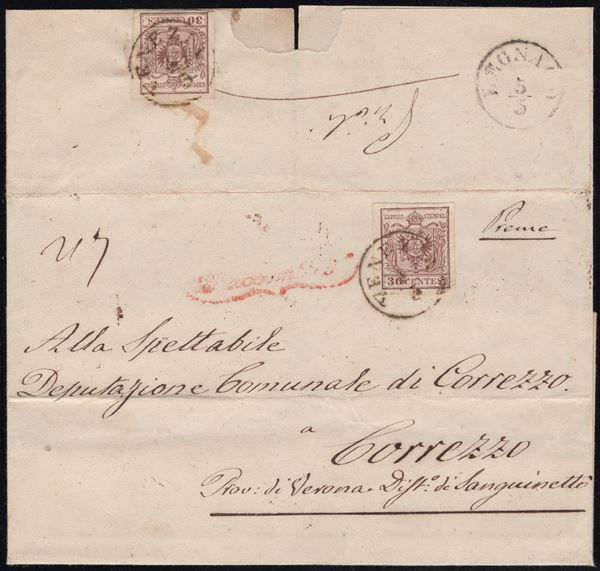 30 CENTES.
VENEZIA
LEGNAGO
5
KKPOST-STEMPEL
Preme
30 CENTES
VENEZIA
Alla Spettabile
Deputazione Comunale di Correzzo.
a
Correzzo
Prov: di Verona Dist.º di Sanguinetto